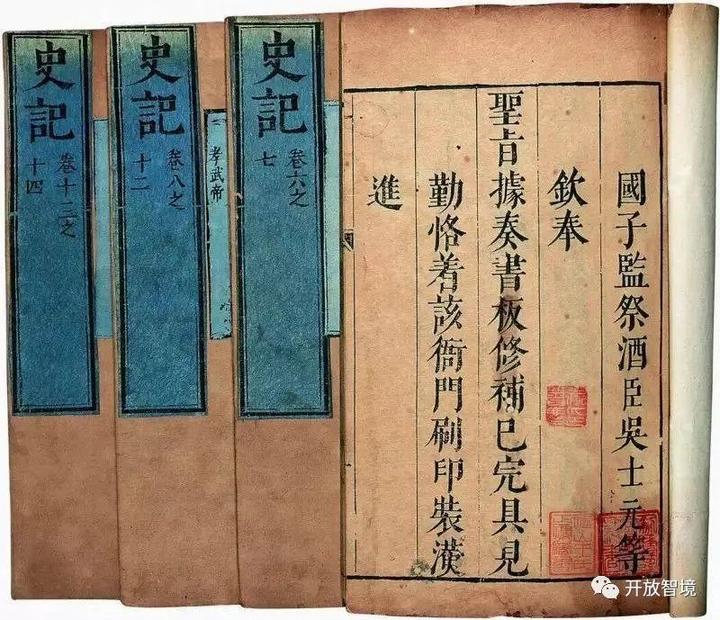 國子監祭酒臣吳士元等
欽奉
聖旨據奏書板修補已完具見
勤恪着該衙門刷印裝潢
進
史記
卷六之
七
孝武帝
史記
卷八之
十二
史記
卷十三之
十四
开放智境